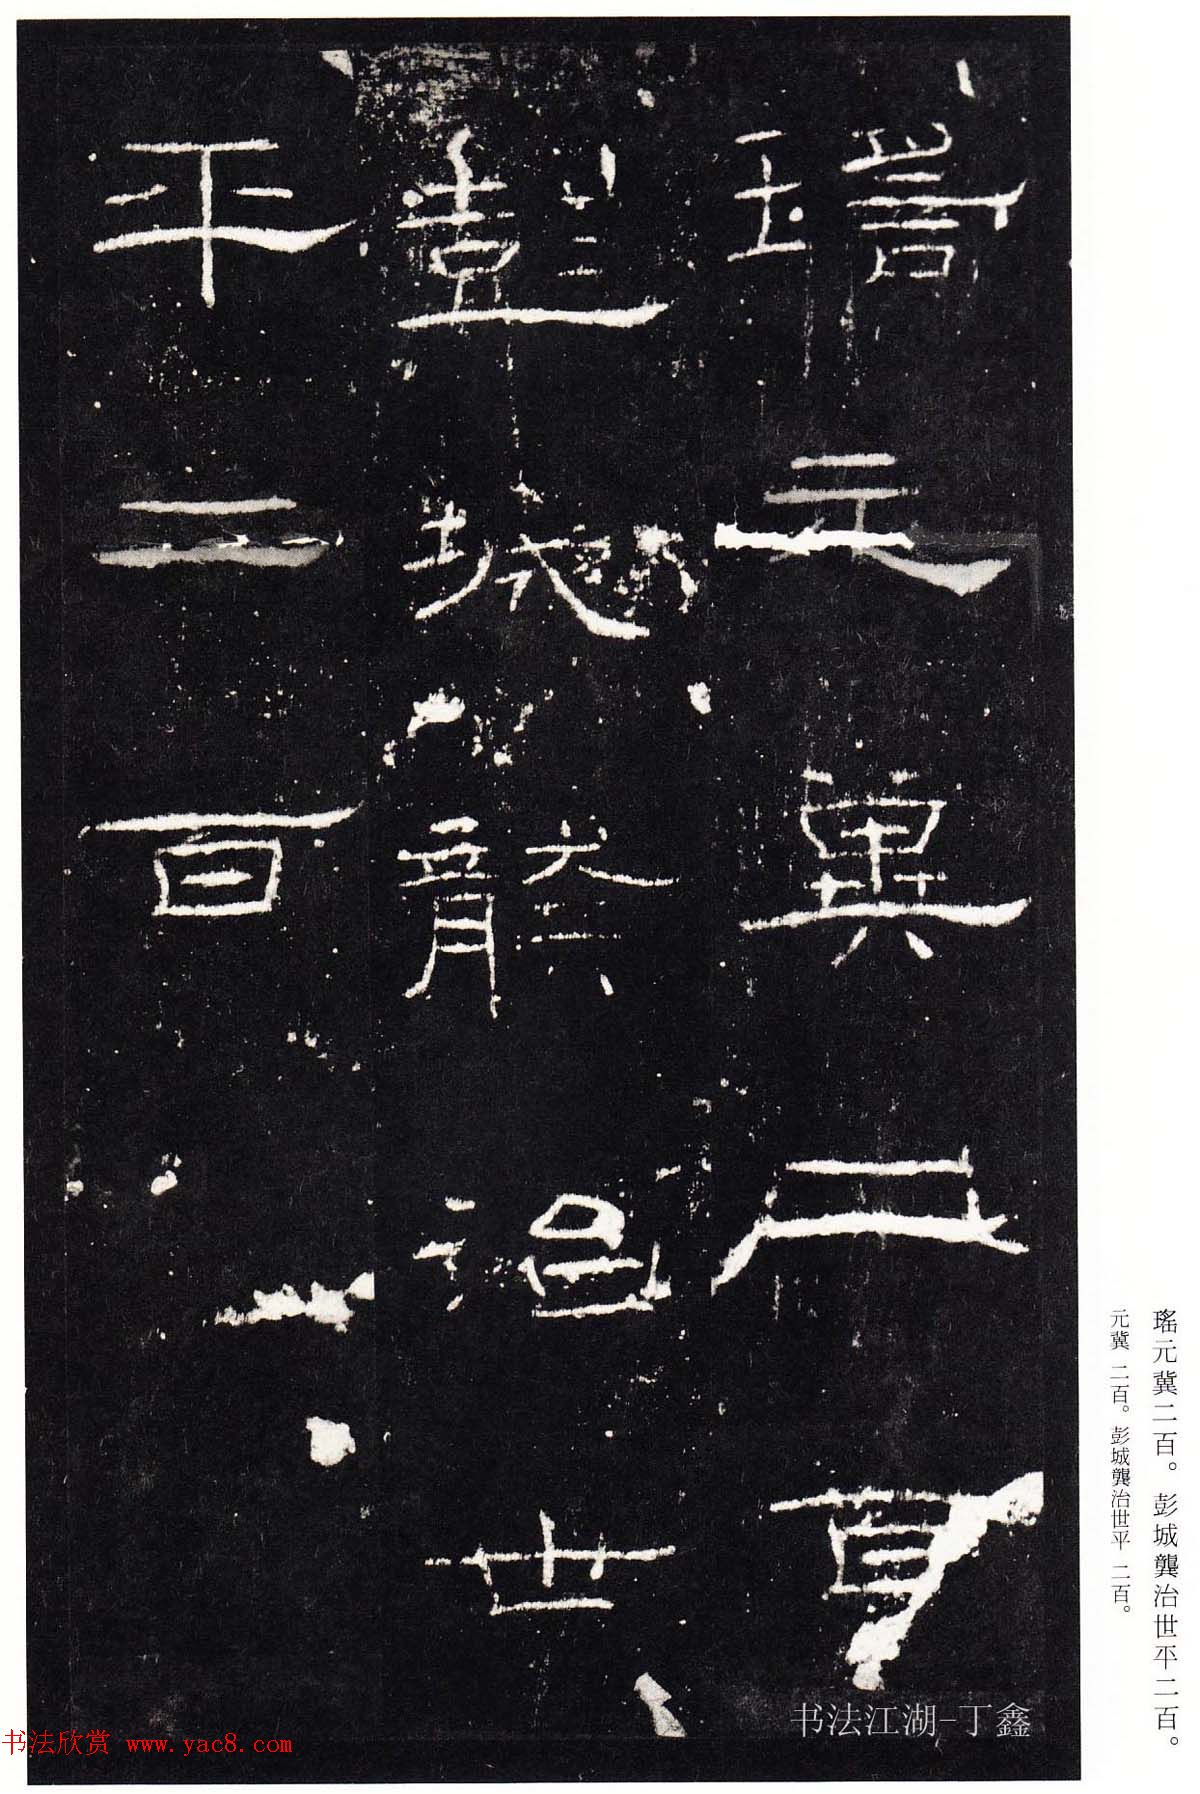 瑤元冀二百
彭城龔治世
平二百
瑤元冀二百。彭城龔治世平二百。
元冀 二百。彭城龔治世平 二百。
书法江湖-丁鑫
书法欣赏 www.yac8.com